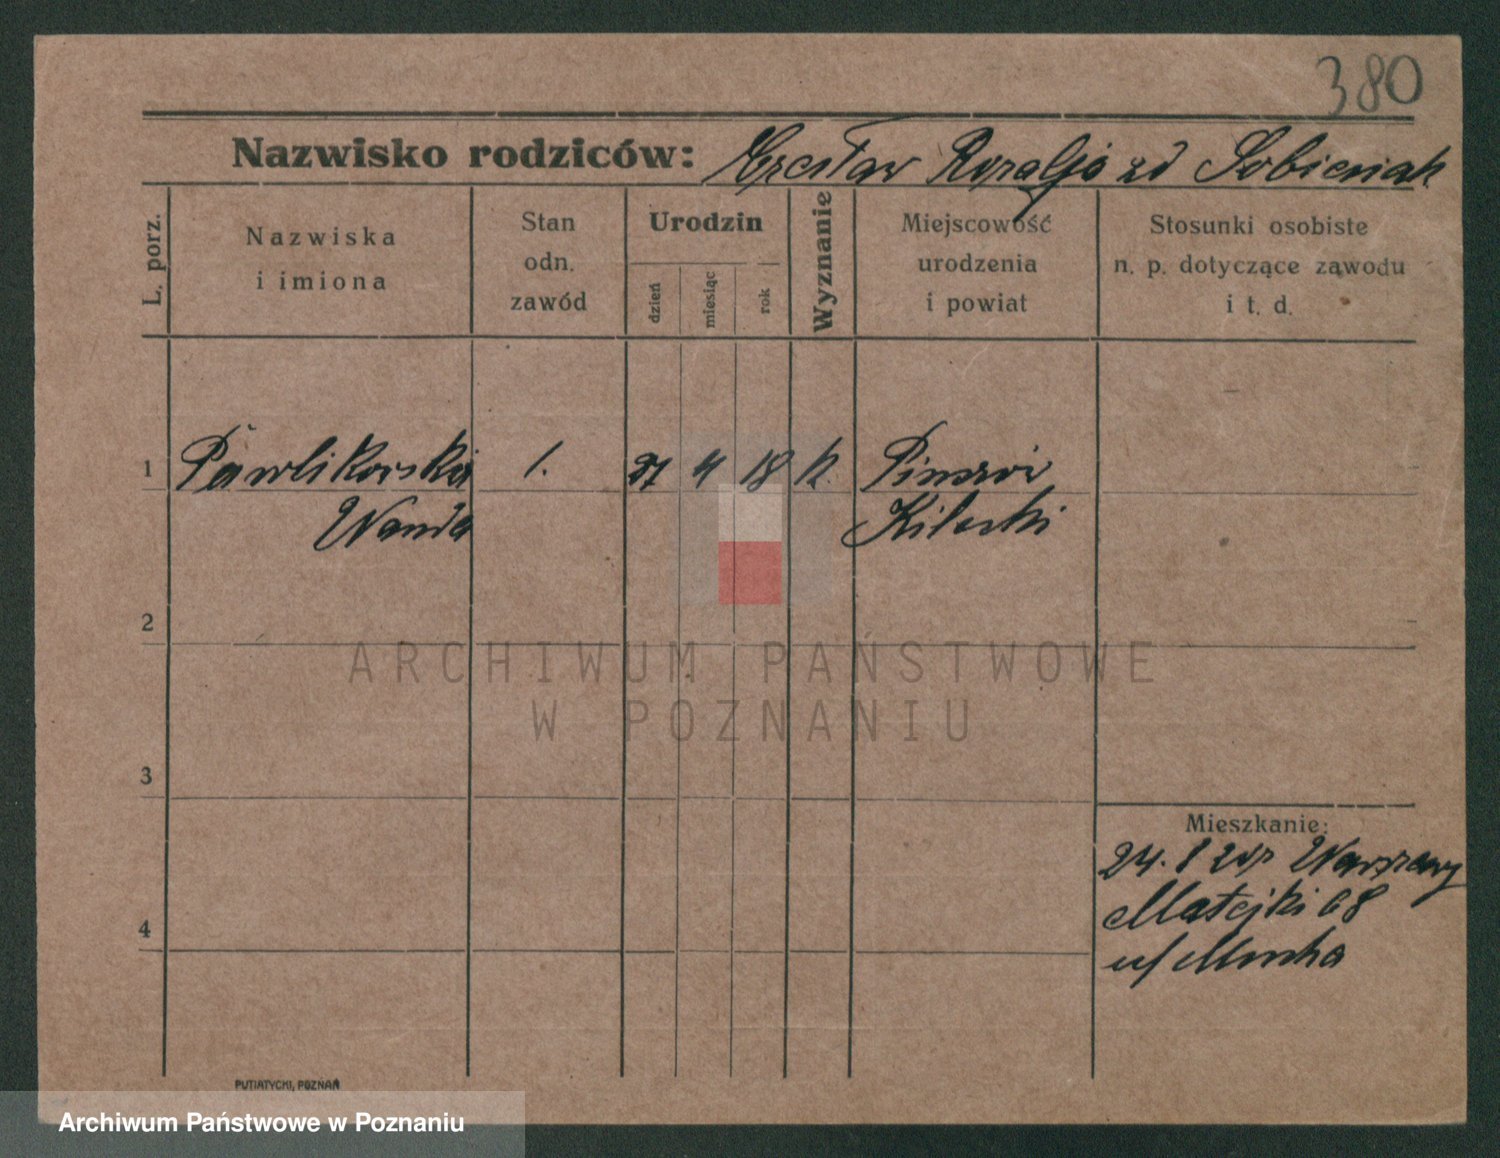 380
Nazwisko rodziców: Rozalja zd Sobieniak
L. porz.
Nazwiska
i imiona
Stan
odn.
zawód
Urodzin
dzień
miesiąc
rok
Wyznanie
Miejscowość
urodzenia
i powiat
Stosunki osobiste
n. p. dotyczące zawodu
i t. d.
1 Pawlikowska 1. 27 4 18 k.
Wanda
2
3
4
Mieszkanie:
24. Warszawy
Matejki 68
u/
ARCHIWUM PAŃSTWOWE
W POZNANIU
PUTIATYCKI, POZNAŃ
Archiwum Państwowe w Poznaniu